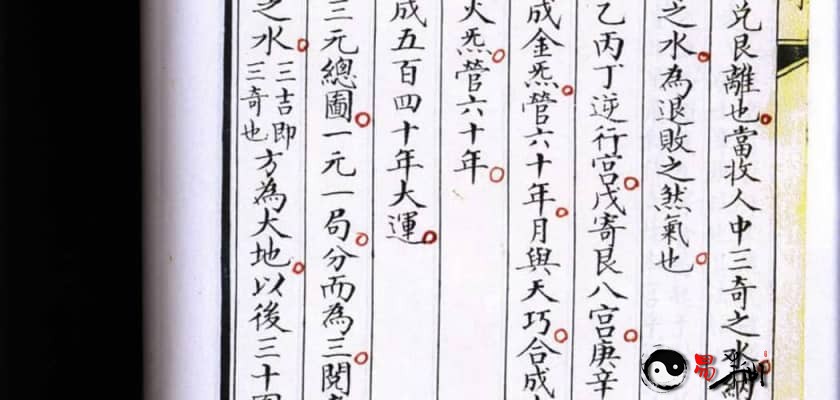 兑艮離也當收人中三奇之水納
之水為退敗之然氣也
乙丙丁逆行宮戊寄艮八宮庚辛
成金炁管六十年月與天巧合成
火炁管六十年
成五百四十年大運
三元總圖一元一局分而為三閱
之水三吉即三奇也方為大地以後三十
易